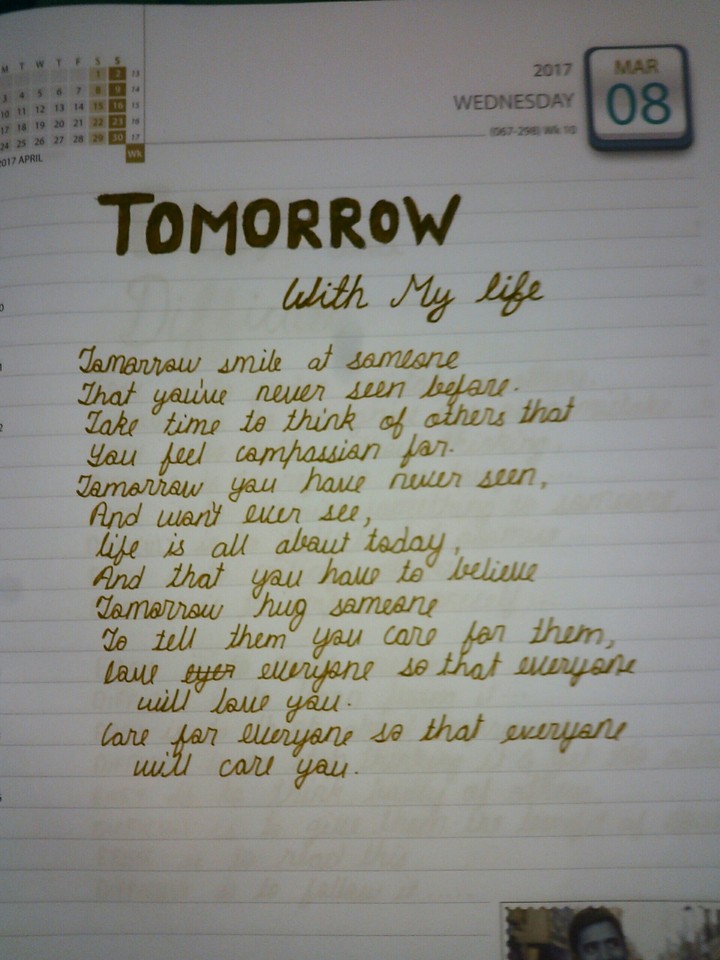 M T W T F S S
1 2 13
3 4 5 6 7 8 9 14
10 11 12 13 14 15 16 15
17 18 19 20 21 22 23 16
24 25 26 27 28 29 30 17
2017 APRIL Wk
2017
WEDNESDAY
(067-298) Wk 10
MAR
08
TOMORROW
With My life
Tomorrow smile at someone
That you've never seen before.
Take time to think of others that
You feel compassion for.
Tomorrow you have never seen,
And won't ever see,
life is all about today,
And that you have to believe
Tomorrow hug someone
To tell them you care for them,
love everyone so that everyone
will love you.
Care for everyone so that everyone
will care you.